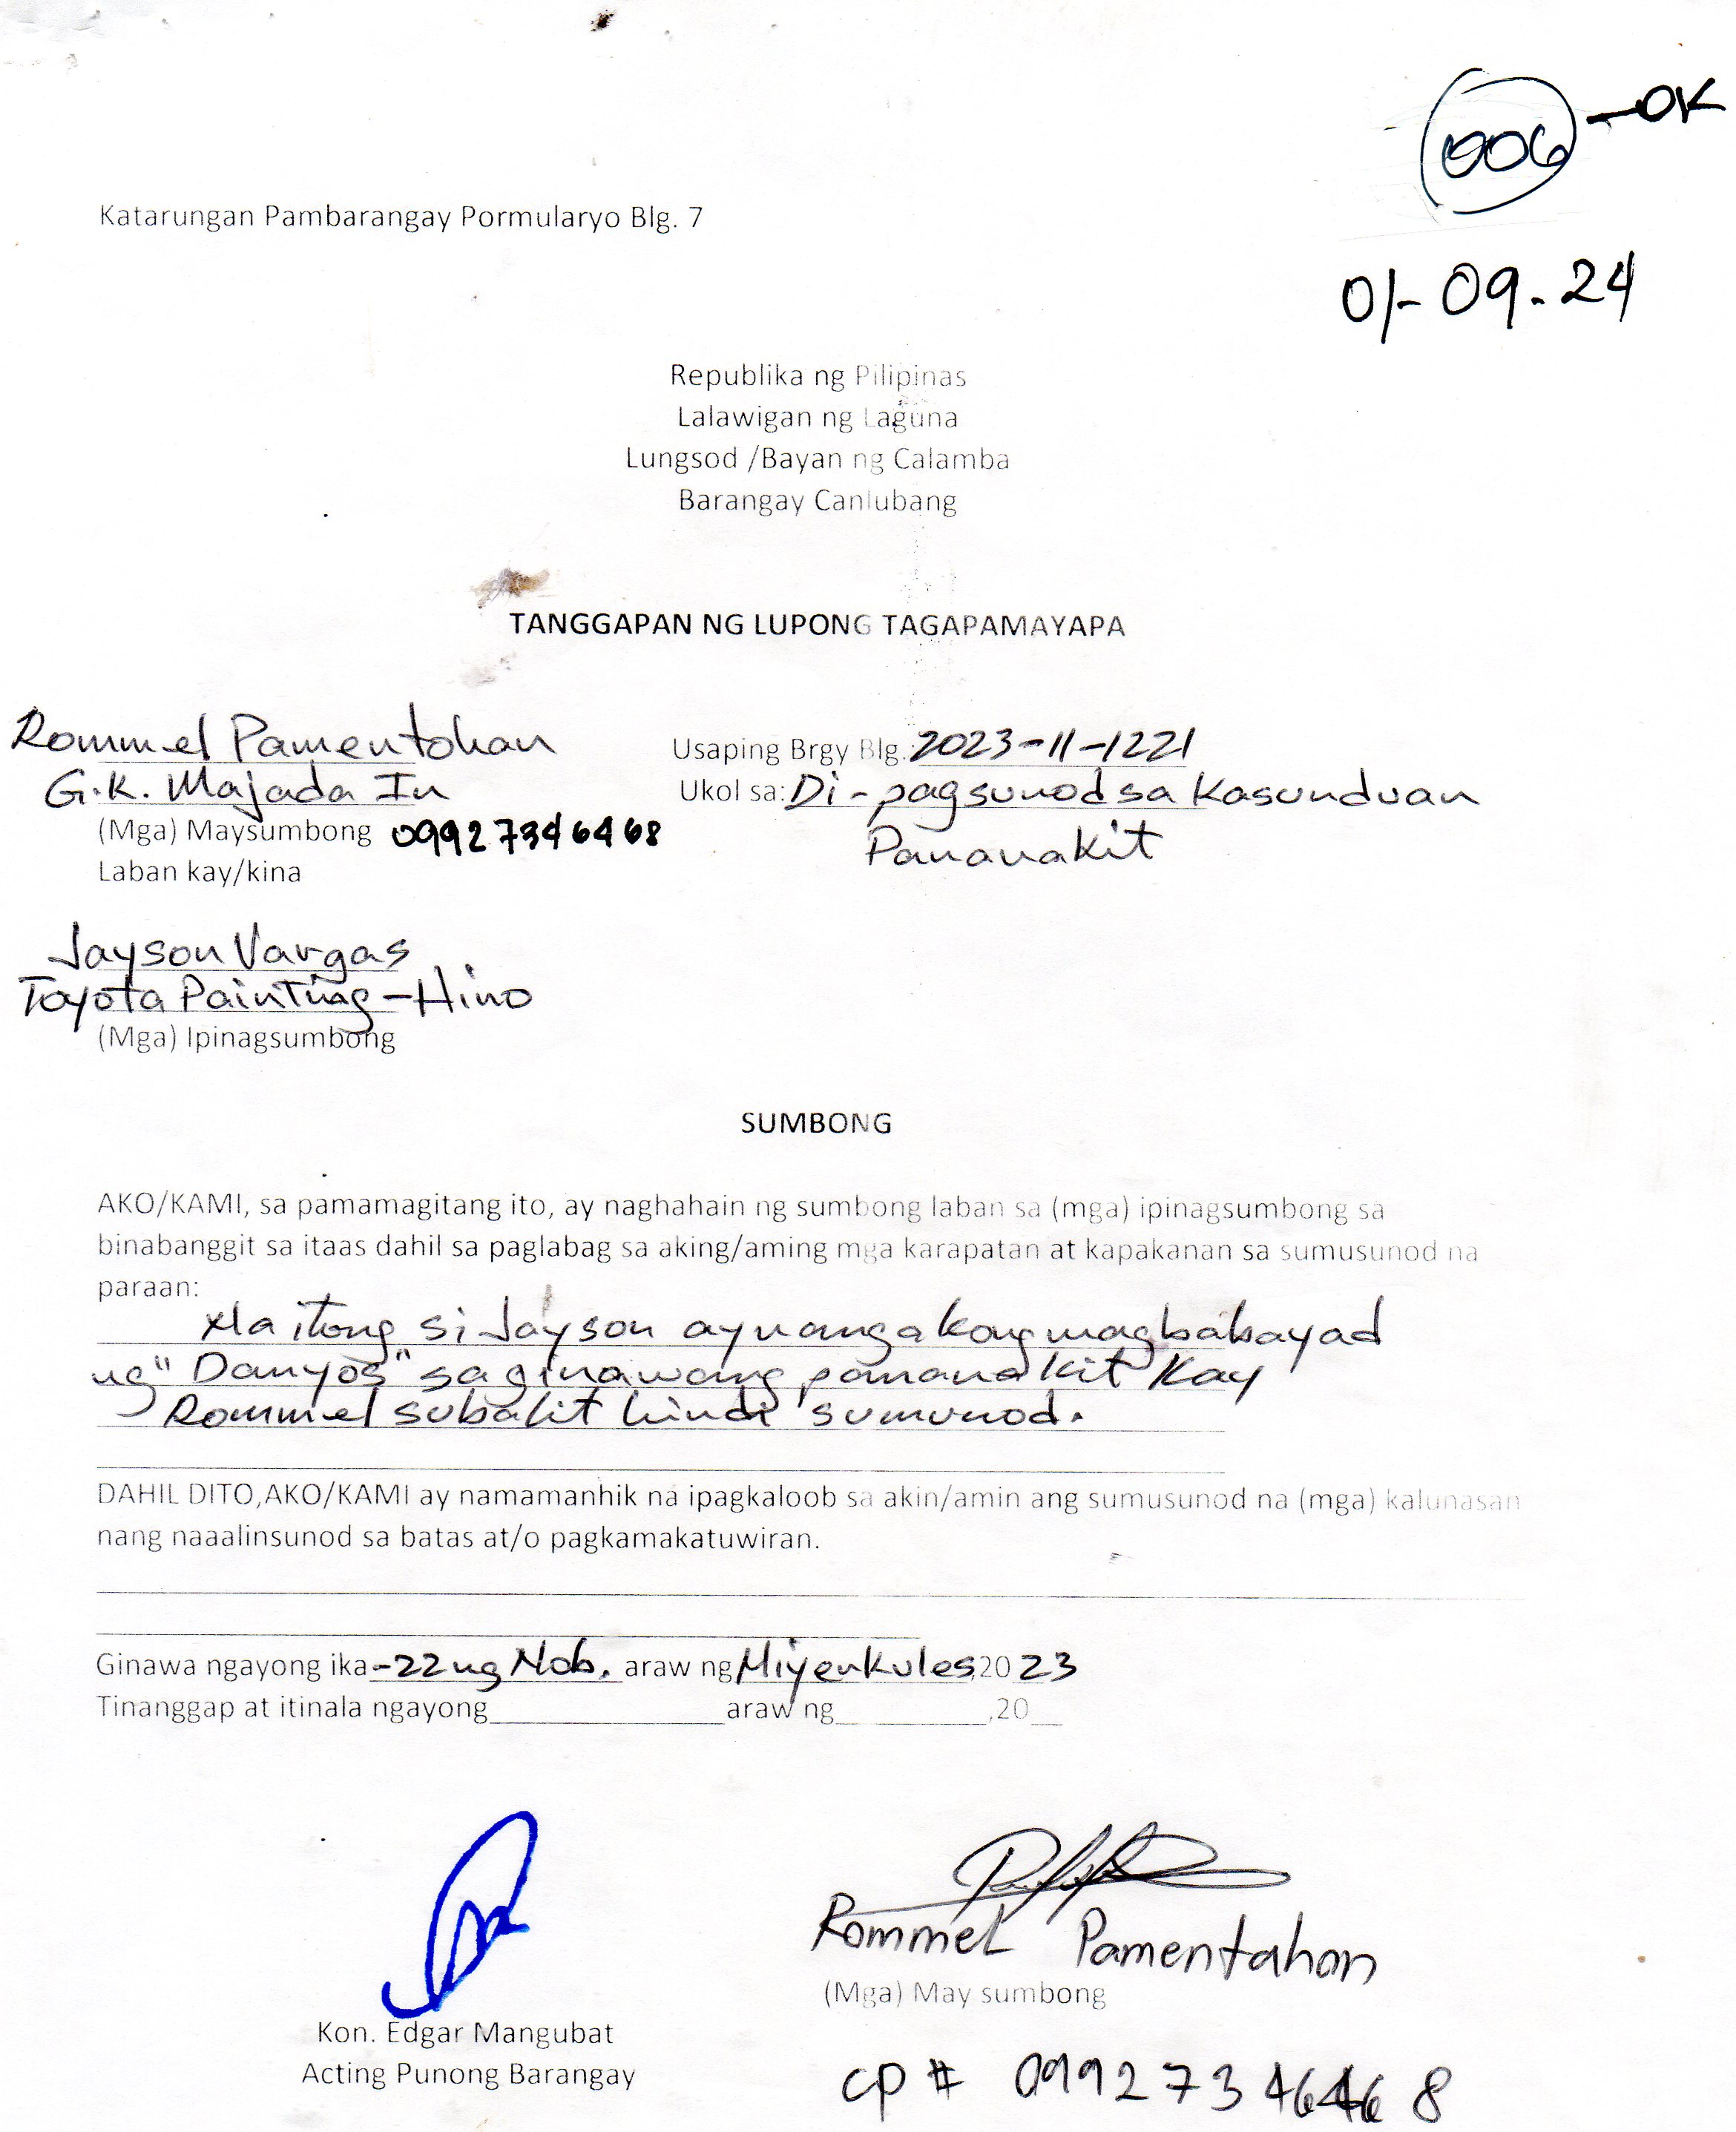 006 -OK
01-09-24
Katarungan Pambarangay Pormularyo Blg. 7
Republika ng Pilipinas
Lalawigan ng Laguna
Lungsod /Bayan ng Calamba
Barangay Canlubang
TANGGAPAN NG LUPONG TAGAPAMAYAPA
Rommel Pamentohan
G.K. Majada In
(Mga) Maysumbong 09927346468
Laban kay/kina
Usaping Brgy Blg. 2023-11-1221
Ukol sa: Di-pagsunod sa Kasunduan
Pananakit
Jayson Vargas
Toyota Painting-Hino
(Mga) Ipinagsumbong
SUMBONG
AKO/KAMI, sa pamamagitang ito, ay naghahain ng sumbong laban sa (mga) ipinagsumbong sa
binabanggit sa itaas dahil sa paglabag sa aking/aming mga karapatan at kapakanan sa sumusunod na
paraan:
Na itong si Jayson ay nangakong magbabayad
ng "Danyos" sa ginawang pananakit kay
Rommel subalit hindi sumunod.
DAHIL DITO,AKO/KAMI ay namamanhik na ipagkaloob sa akin/amin ang sumusunod na (mga) kalunasan
nang naaalinsunod sa batas at/o pagkamakatuwiran.
Ginawa ngayong ika-22 ng Nob. araw ng Miyenkules 2023
Tinanggap at itinala ngayong araw ng ,20
Rommel Pamentahon
(Mga) May sumbong
Kon. Edgar Mangubat
Acting Punong Barangay
CP # 09927346468